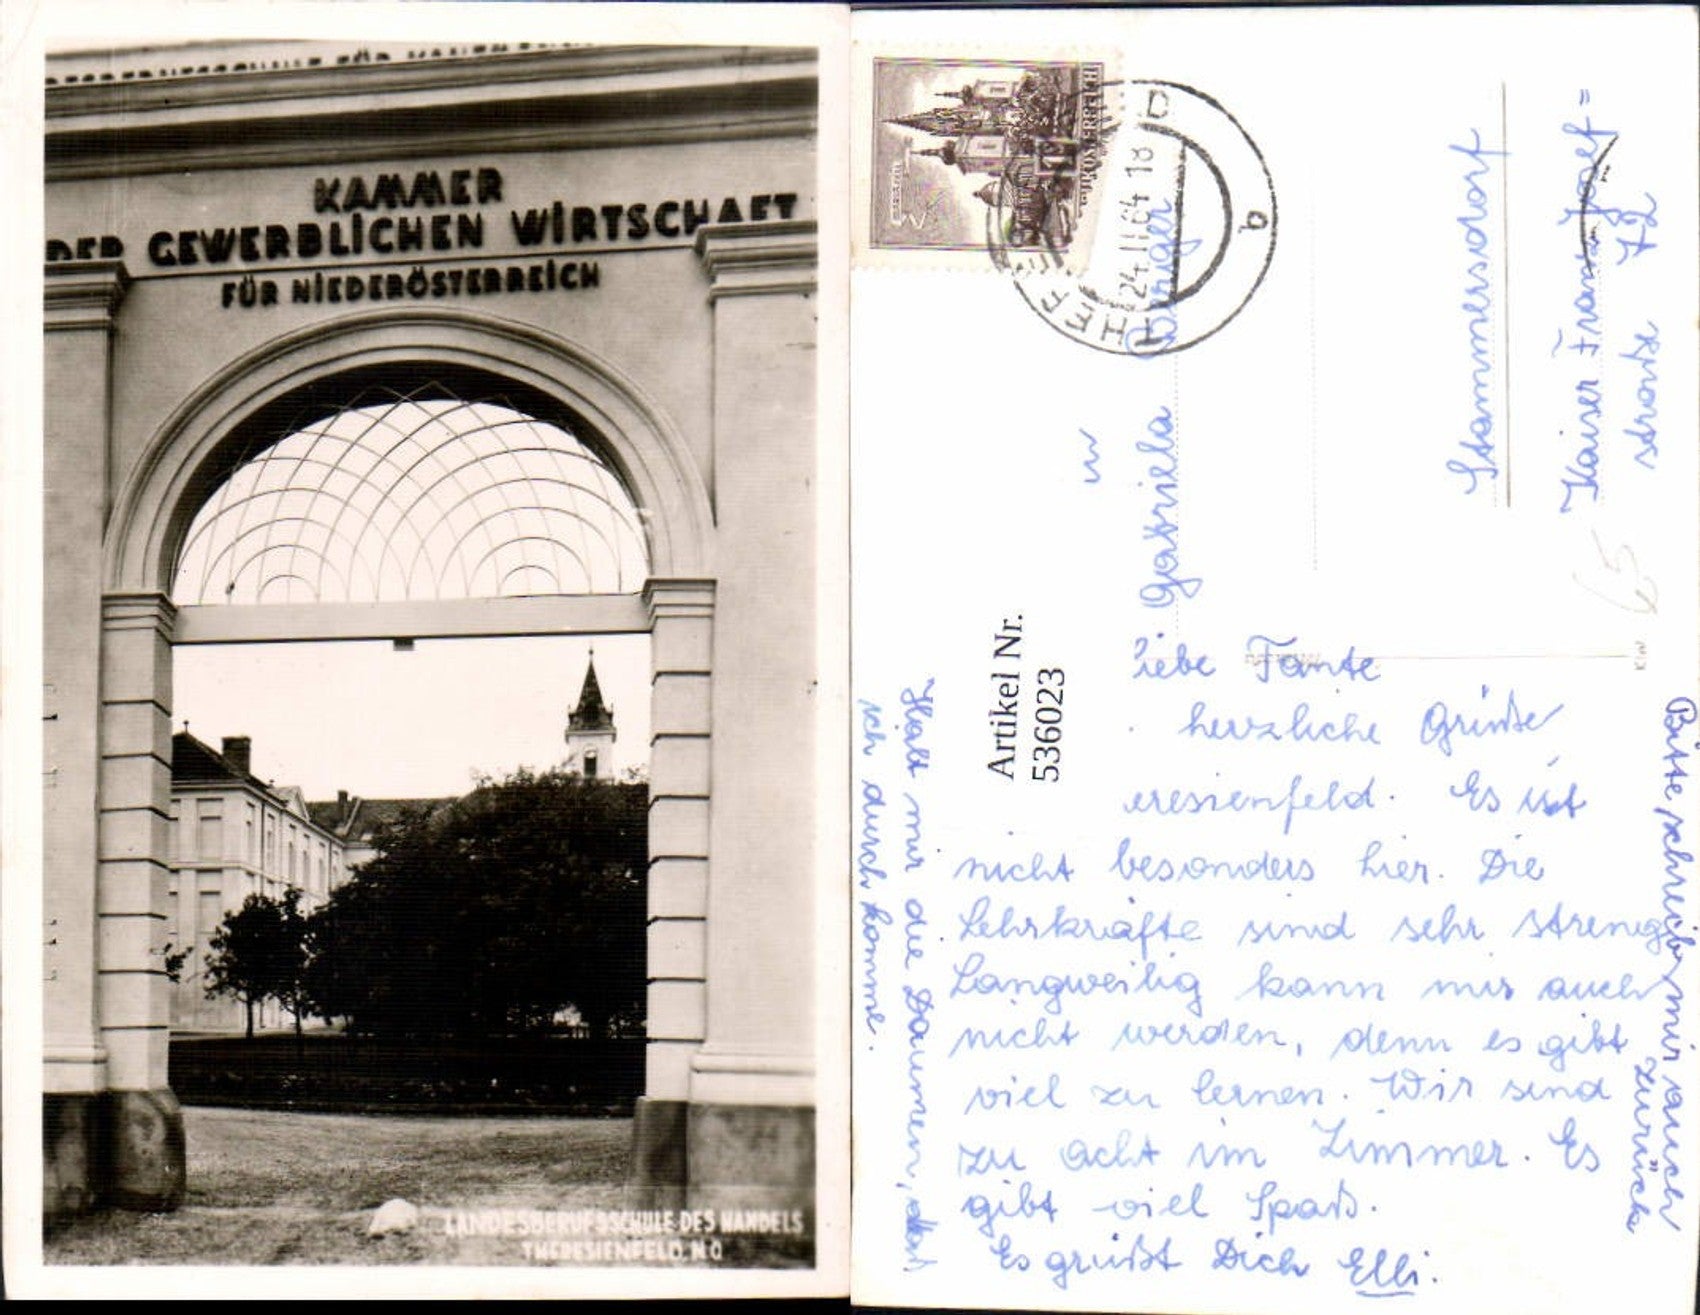 KAMMER
DER GEWERBLICHEN WIRTSCHAFT
FÜR NIEDERÖSTERREICH
LANDESBERUFSSCHULE DES HANDELS
THERESIENFELD, N.Ö
REPUBLIK ÖSTERREICH
24.11.64 18
b
Gabriela
in
Stammersdorf
Kaiser Franz Josef=
straße 72
65
Artikel Nr.
536023
liebe Tante
herzliche Grüße
eresienfeld. Es ist
nicht besonders hier. Die
Lehrkräfte sind sehr streng
Langweilig kann mir auch
nicht werden, denn es gibt
viel zu lernen. Wir sind
zu acht im Zimmer. Es
gibt viel Spaß.
Es grüßt Dich Elli.
Halt mir die Daumen, daß
ich durch komme.
Bitte, schreib mir auch
zurück